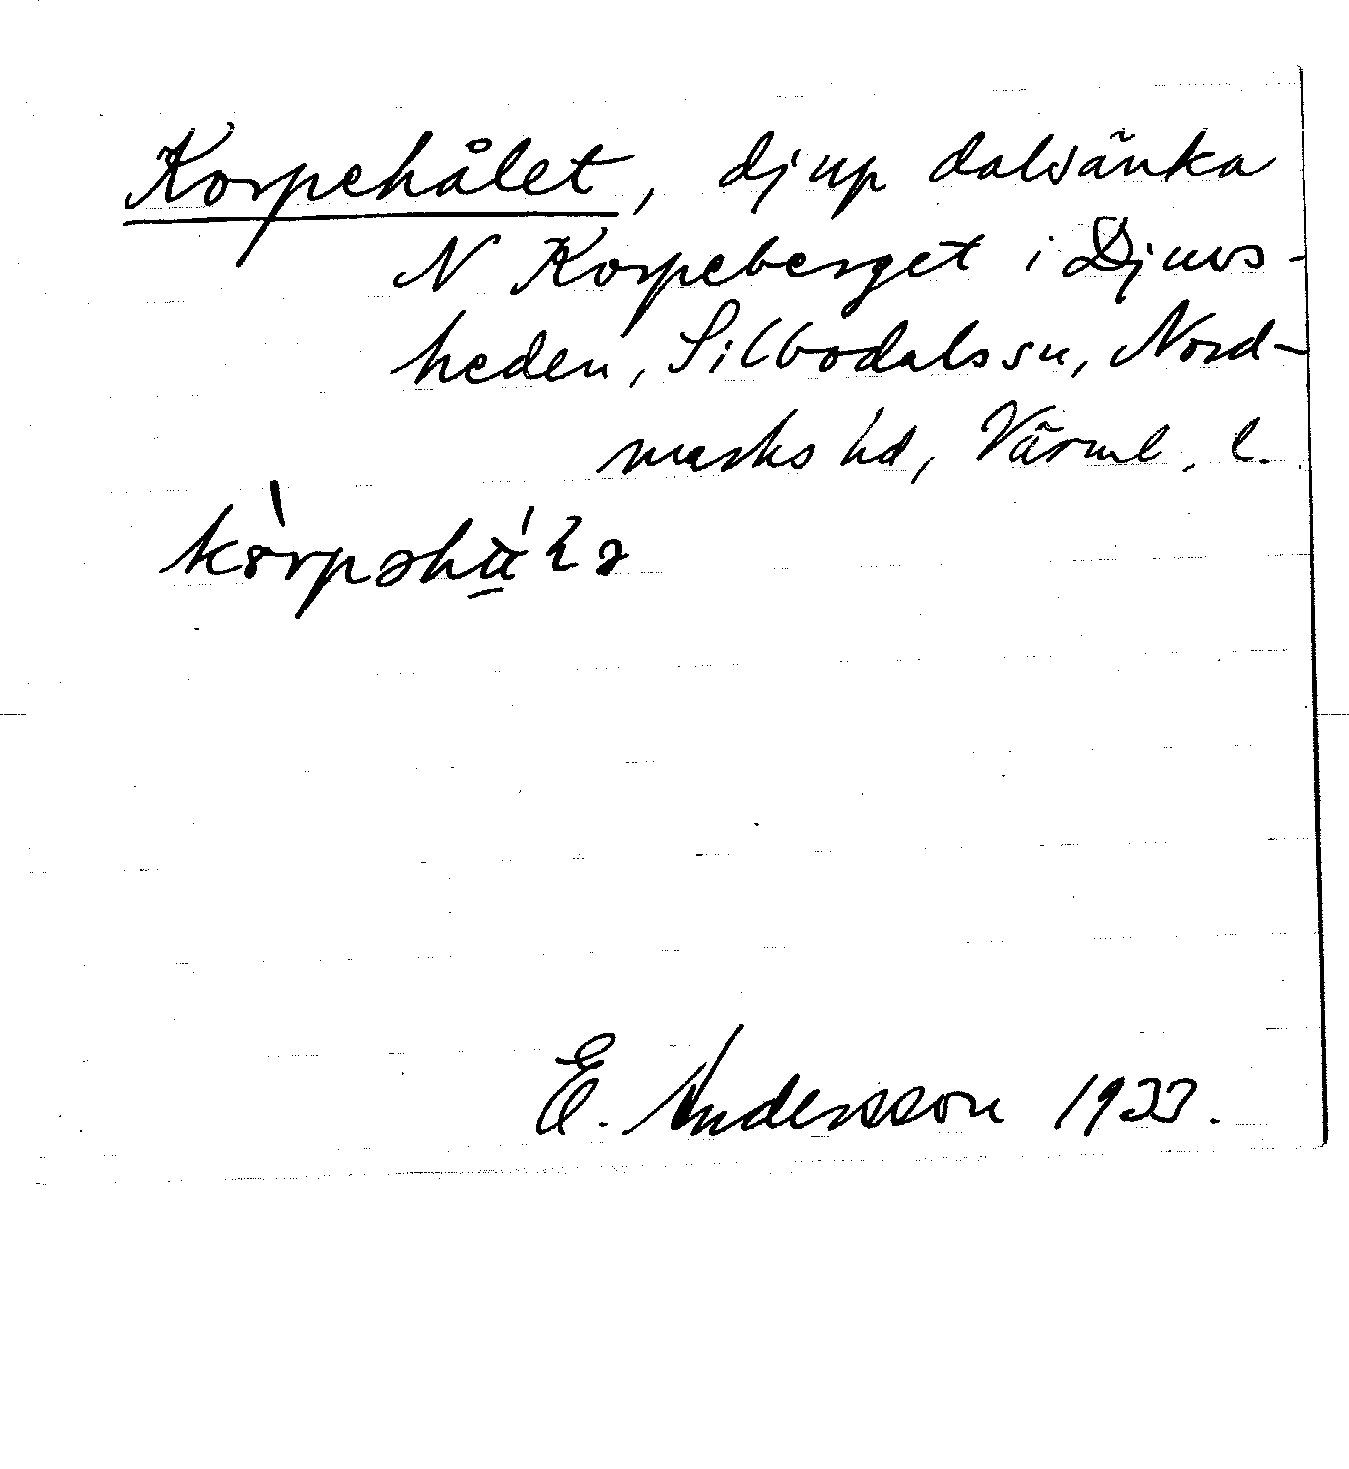 Korpehålet, djup dalsänka
N Korpeberget i Djuvs-
heden, Silbodals sn, Nord-
marks hd, Värml. l.
kòrpəhá̤ɫə
E. Andersson 1933.